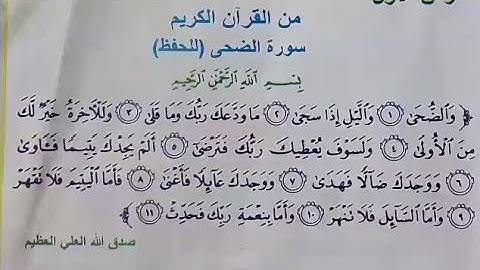 من القرآن الكريم
سورة الضحى (للحفظ)
بِسْمِ ٱللَّهِ ٱلرَّحْمَٰنِ ٱلرَّحِيمِ
﴿ وَٱلضُّحَىٰ ۝١ وَٱلَّيْلِ إِذَا سَجَىٰ ۝٢ مَا وَدَّعَكَ رَبُّكَ وَمَا قَلَىٰ ۝٣ وَلَلْءَاخِرَةُ خَيْرٌ لَّكَ
مِنَ ٱلْأُولَىٰ ۝٤ وَلَسَوْفَ يُعْطِيكَ رَبُّكَ فَتَرْضَىٰٓ ۝٥ أَلَمْ يَجِدْكَ يَتِيمًا فَـَٔاوَىٰ
۝٦ وَوَجَدَكَ ضَآلًّا فَهَدَىٰ ۝٧ وَوَجَدَكَ عَآئِلًا فَأَغْنَىٰ ۝٨ فَأَمَّا ٱلْيَتِيمَ فَلَا تَقْهَرْ
۝٩ وَأَمَّا ٱلسَّآئِلَ فَلَا تَنْهَرْ ۝١٠ وَأَمَّا بِنِعْمَةِ رَبِّكَ فَحَدِّثْ ۝١١ ﴾
صدق الله العلي العظيم